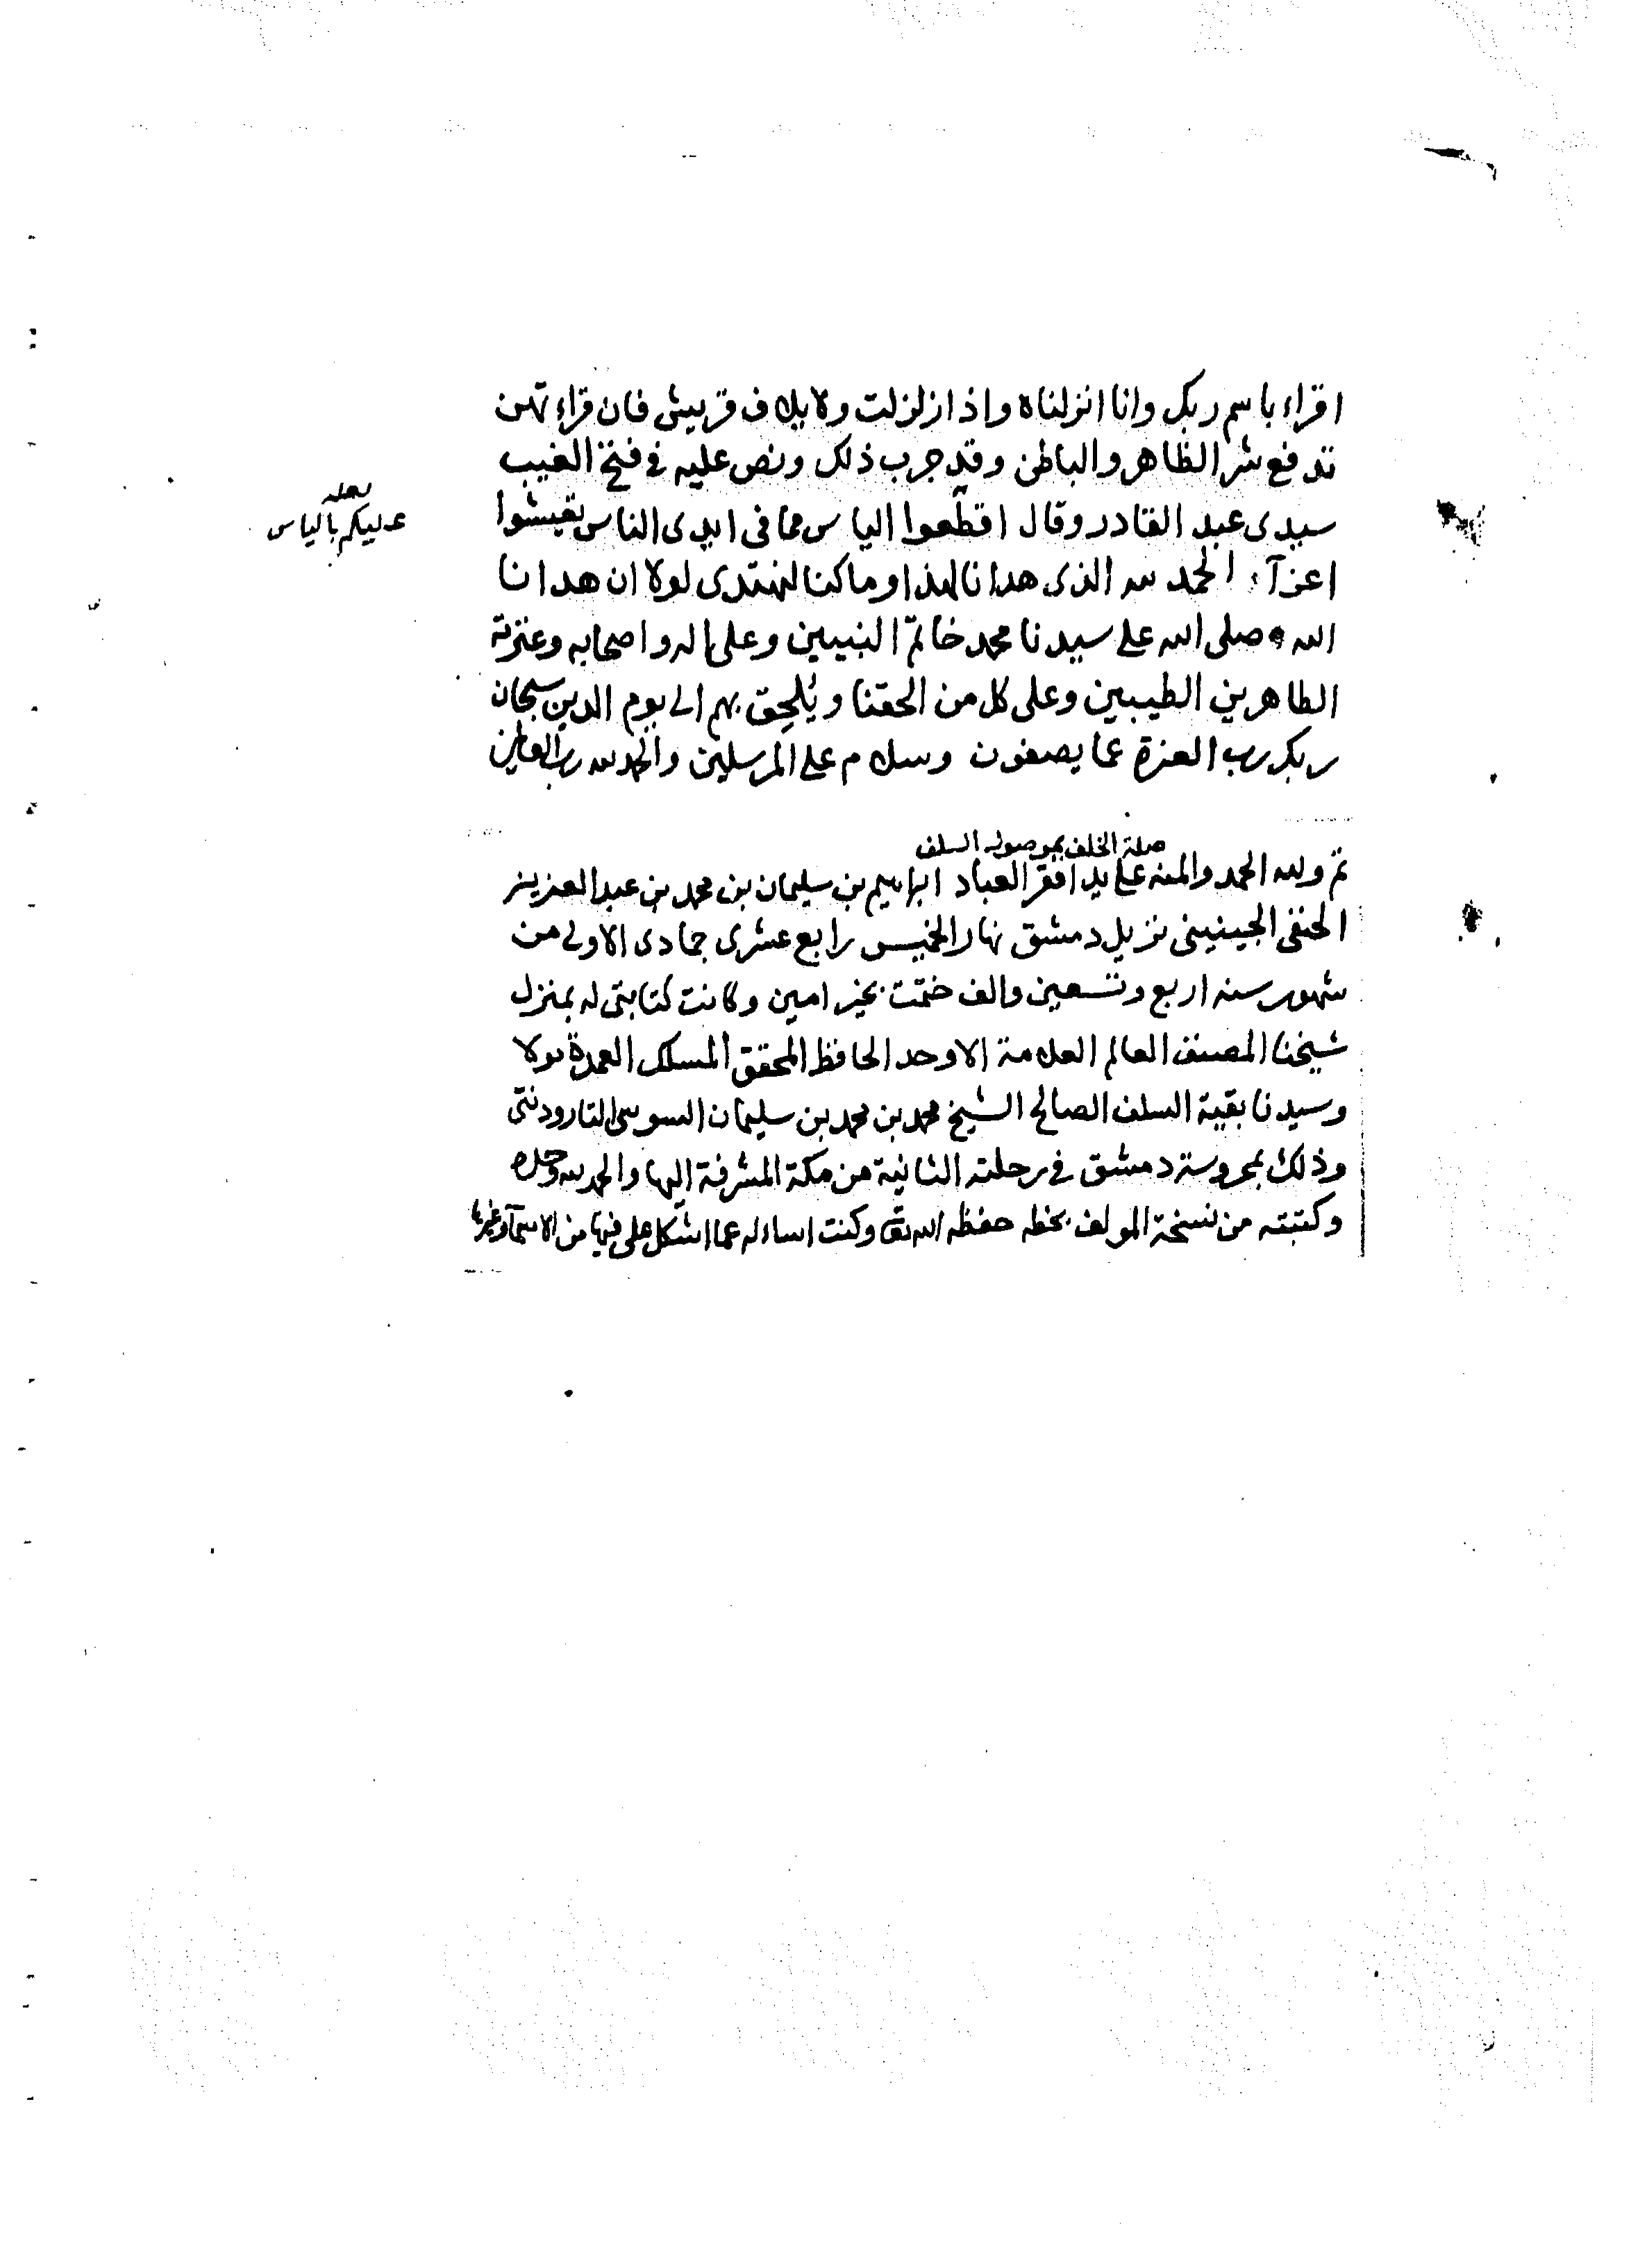 اقراء باسم ربك وانا انزلناه واذا زلزلت ولايلاف قريش فان قراءتهن
تدفع شر الظاهر والباطن وقد جرب ذلك ونص عليه في فتح الغيب
سيدى عبد القادر وقال اقطعوا الياس مما فى ايدى الناس تعيشوا
لعله
عليكم بالياس
اعزآء الحمد لله الذى هدانا لهذا وما كنا لنهتدى لولا ان هدانا
الله وصلى الله على سيدنا محمد خاتم النبيين وعلى اله واصحابه وعترته
الطاهرين الطيبين وعلى كل من الحقنا ويُلحِق بهم الى يوم الدين سبحان
ربك رب العزة عما يصفون وسلام على المرسلين والحمد لله رب العالمين
صلة الخلف بموصول السلف
تم ولله الحمد والمنه على يد افقر العباد ابراهيم بن سليمان بن محمد بن عبد العزيز
الحنفى الجينينى نزيل دمشق نهار الخميس رابع عشرى جمادى الاولى من
شهور سنه اربع وتسعين والف ختمت بخير امين وكانت كتابتى له بمنزل
شيخنا المصنف العالم العلامة الاوحد الحافظ المحقق المسلك العمدة مولا
وسيدنا بقية السلف الصالح الشيخ محمد بن محمد بن سليمان السوسى التارودنتى
وذلك بمحروسة دمشق في رحلته الثانية من مكة المشرفة اليها والحمد لله وحده
وكتبته من نسخة المولف بخطه حفظه الله تعا وكنت اساءله عما اشكل على فيها من الاسمآ وغيرها